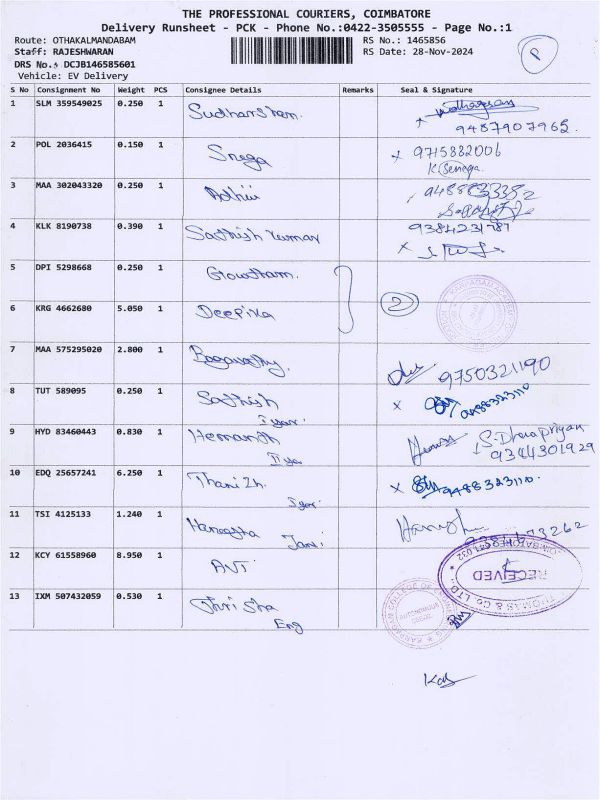 THE PROFESSIONAL COURIERS, COIMBATORE
Delivery Runsheet - PCK - Phone No.:0422-3505555 - Page No.:1
Route: OTHAKALMANDABAM
RS No.: 1465856
Staff: RAJESHWARAN
RS Date: 28-Nov-2024
DRS No.: DCJB146585601
Vehicle: EV Delivery
P
S No Consignment No Weight PCS Consignee Details Remarks Seal & Signature
1 SLM 359549025 0.250 1 Sudharsham.
9487907965.
2 POL 2036415 0.150 1 Snega x 9715882006
3 MAA 302043320 0.250 1
4 KLK 8190738 0.390 1 Sathish Kumar 9384231787
x
5 DPI 5298668 0.250 1 Gowtham.
2
6 KRG 4662680 5.050 1 Deepika
7 MAA 575295020 2.800 1 Bagavathy. 9750321190
8 TUT 589095 0.250 1 Sathish x 9488323110
I year.
9 HYD 83460443 0.830 1 Hemanth S. Dharapriyan
9344301929
10 EDQ 25657241 6.250 1 x 9488323110.
11 TSI 4125133 1.240 1
12 KCY 61558960 8.950 1
RECEIVED
THOMAS & CO
COIMBATORE-641 032
13 IXM 507432059 0.530 1 Thrisha
Eng
KARPAGAM COLLEGE OF